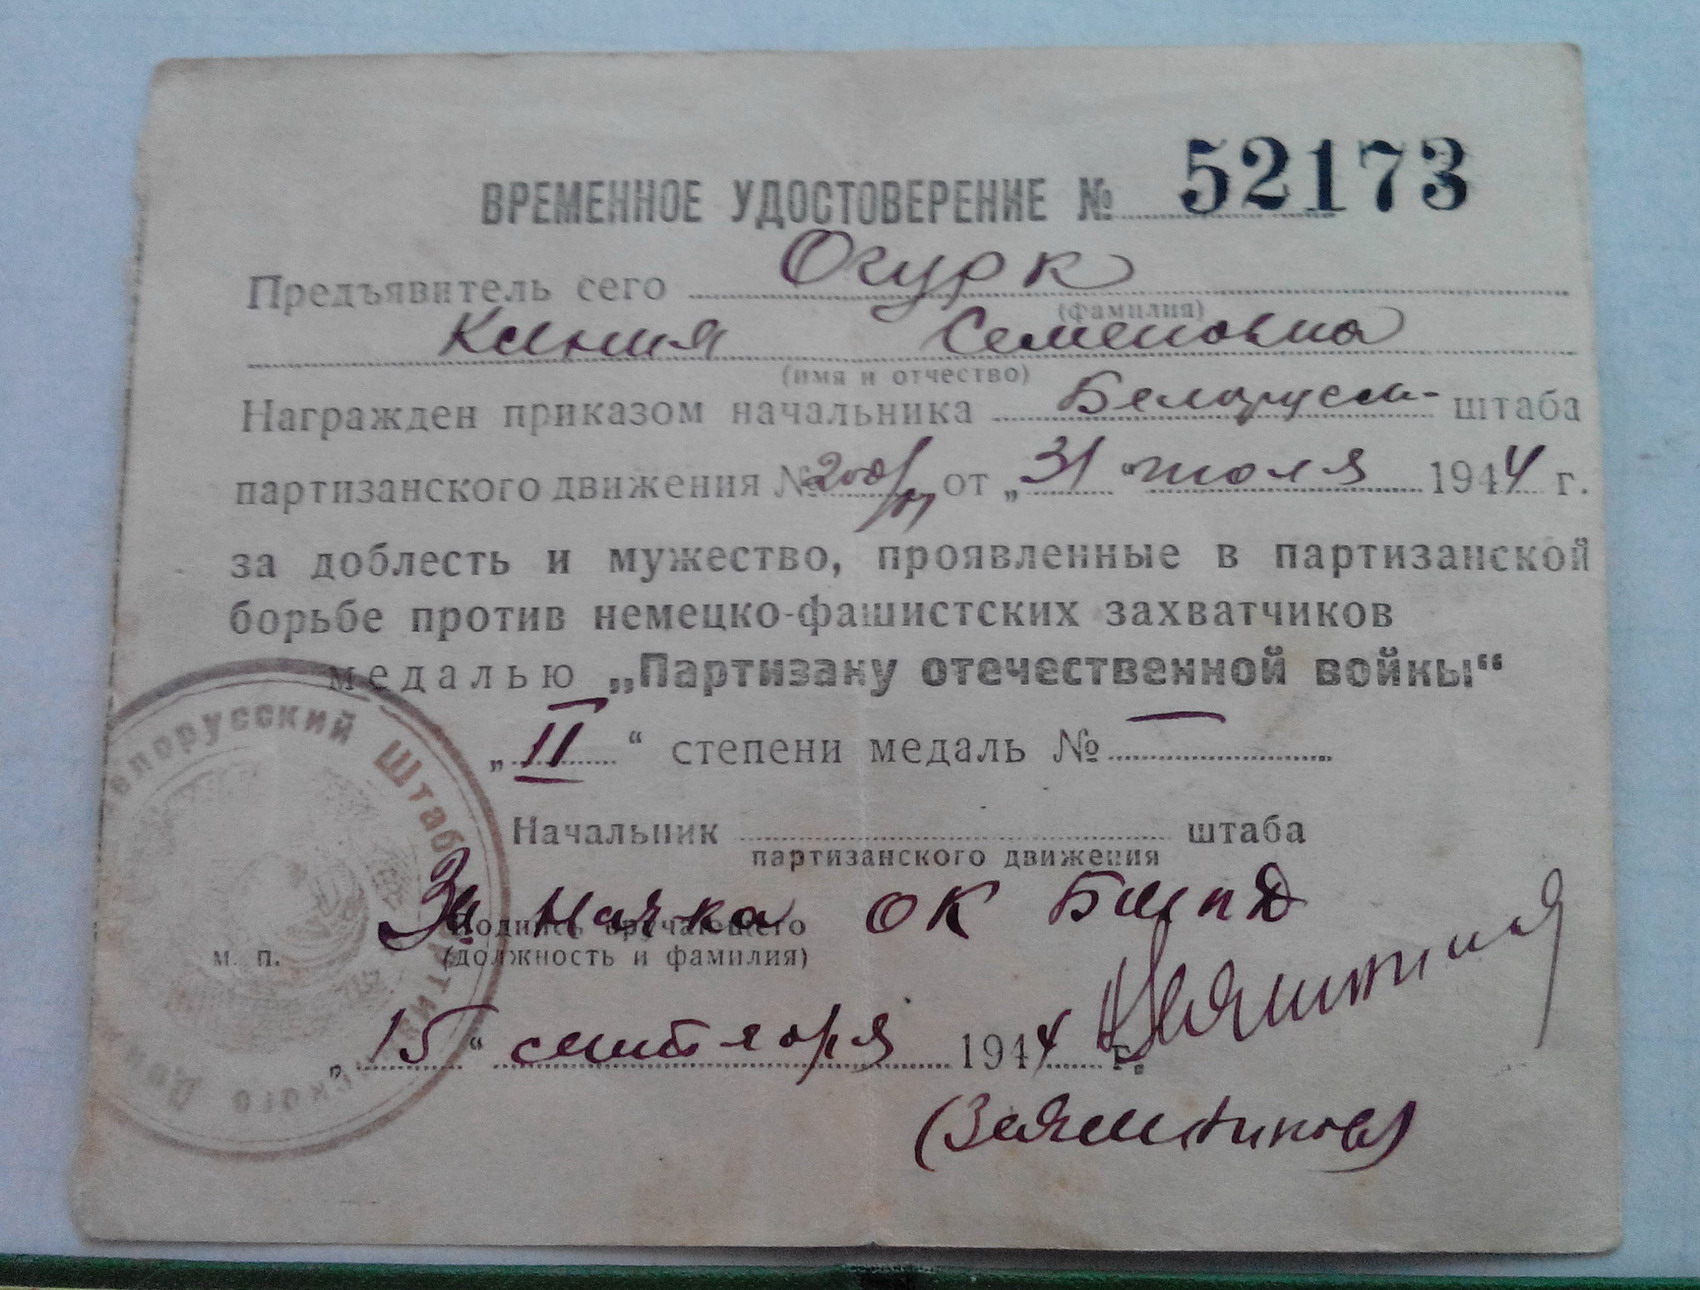 ВРЕМЕННОЕ УДОСТОВЕРЕНИЕ № 52173
Предъявитель сего Огурк
(фамилия)
Ксения Семеновна
(имя и отчество)
Награжден приказом начальника Белорусск- штаба
партизанского движения № 200/ от „31“ июля 1944 г.
за доблесть и мужество, проявленные в партизанской
борьбе против немецко-фашистских захватчиков
медалью „Партизану отечественной войны“
„II“ степени медаль № —
Начальник штаба
партизанского движения
За нач-ка ОК БШПД
Подпись вручающего
(должность и фамилия)
м. п.
„15“ сентября 1944 г.
Белорусский Штаб Партизанского Движ